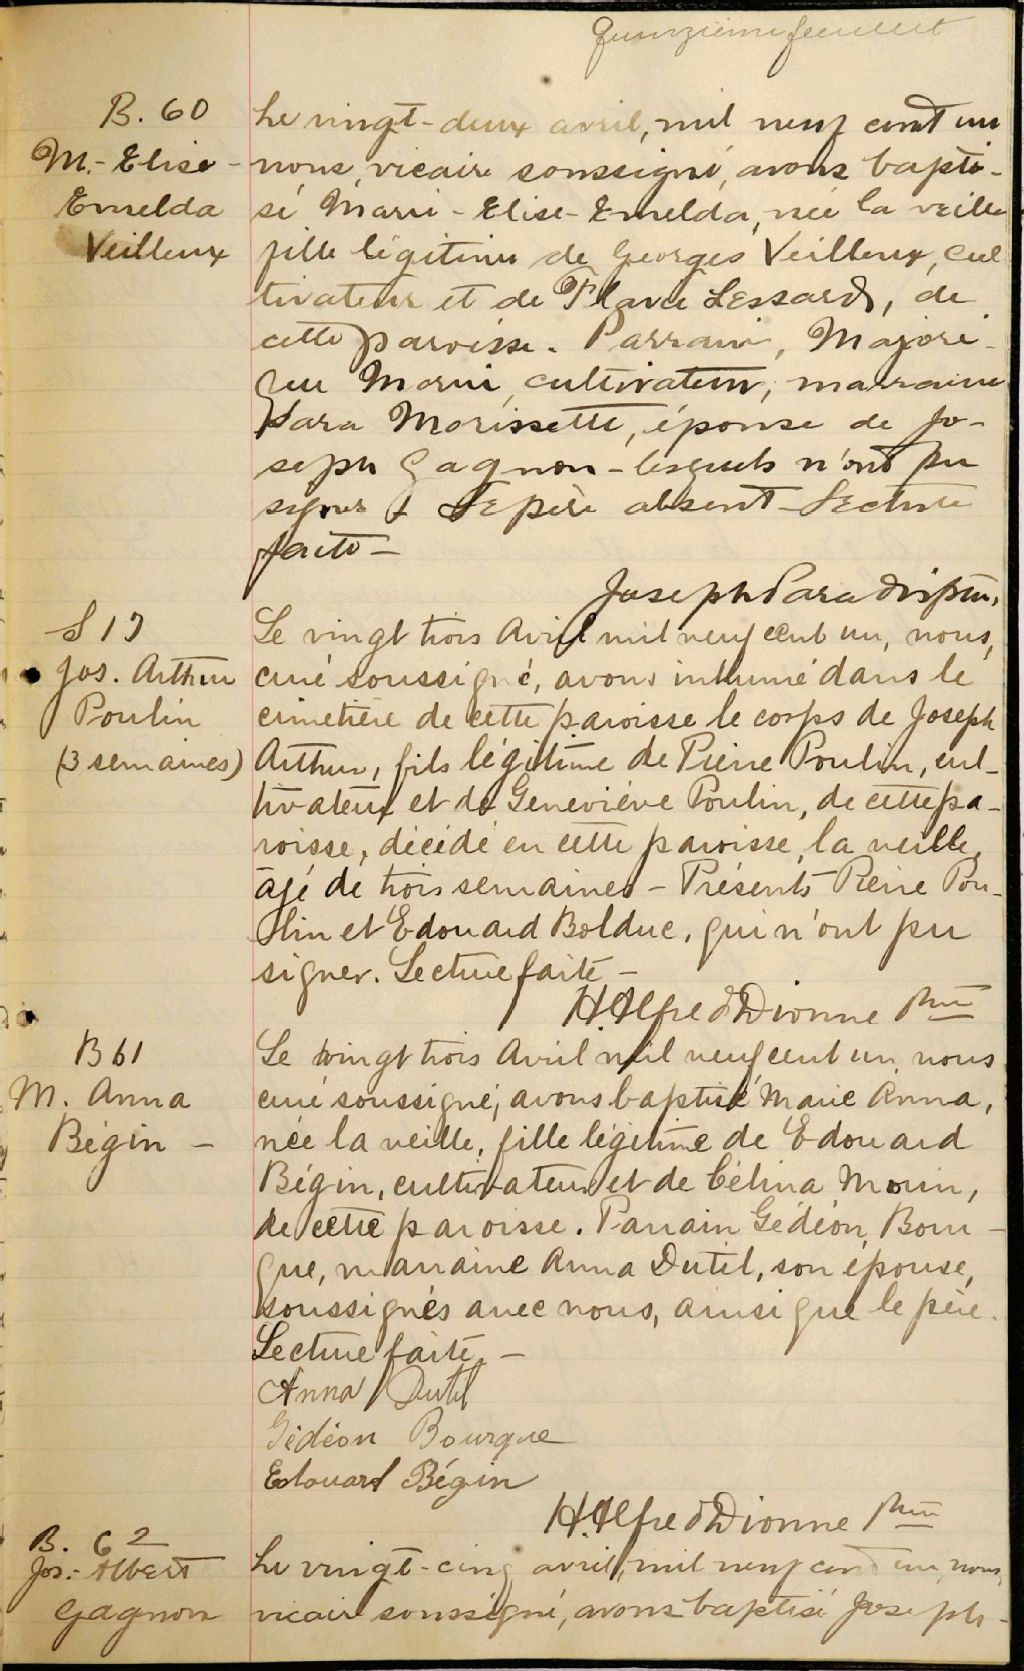 Quinzième feuillet
B. 60
M.- Elise -
Emelda
Veilleux
Le vingt-deux avril, mil neuf cent un
nous, vicaire soussigné, avons bapti-
sé Marie-Elise-Emelda, née la veille
fille légitime de Georges Veilleux, cul
tivateur et de Flavie Lessard, de
cette paroisse. Parrain, Majori-
que Morin, cultivateur, marraine
Sara Morissette, épouse de Jo-
seph Gagnon - lesquels n'ont pu
signer. Le père absent - Lecture
faite -
Joseph Paradis ptre,
S 17
Jos. Arthur
Poulin
(3 semaines)
Le vingt trois Avril mil neuf cent un, nous,
curé soussigné, avons inhumé dans le
cimetière de cette paroisse le corps de Joseph
Arthur, fils légitime de Pierre Poulin, cul-
tivateur et de Geneviève Poulin, de cette pa-
roisse, décédé en cette paroisse, la veille,
âgé de trois semaines - Présents Pierre Pou-
lin et Edouard Bolduc, qui n'ont pu
signer. Lecture faite -
H. Alfred Dionne Ptre
B 61
M. Anna
Bégin -
Le vingt trois Avril mil neuf cent un, nous
curé soussigné, avons baptisé Marie Anna,
née la veille, fille légitime de Edouard
Bégin, cultivateur et de Célina Morin,
de cette paroisse. Parrain Gédéon, Bour-
que, marraine Anna Dutil, son épouse,
soussignés avec nous, ainsi que le père.
Lecture faite. -
Anna Dutil
Gédéon Bourque
Edouard Bégin
H. Alfred Dionne Ptre
B. 62
Jos.- Albert
Gagnon
Le vingt-cinq avril, mil neuf cent un, nous,
vicaire soussigné, avons baptisé Joseph-